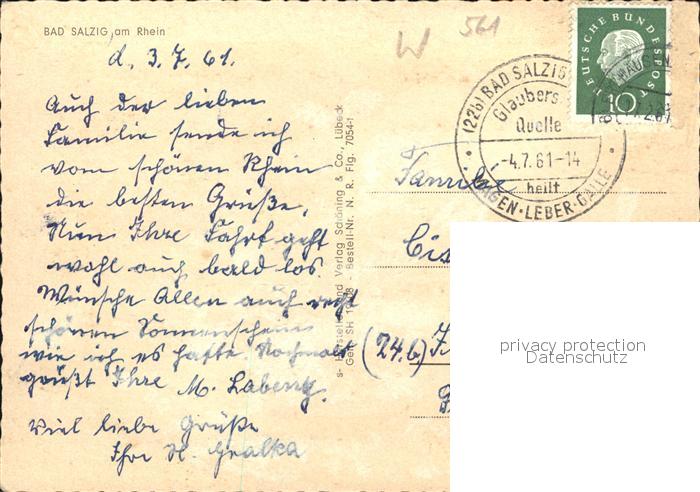 BAD SALZIG am Rhein
d. 3.7.61.
Auch der lieben
Familie sende ich
vom schönen Rhein
die besten Grüße.
Nun Ihre Fahrt geht
wohl auch bald los
Wünsche Allen auch recht
schönen Sonnenschein
wie ich es hatte. Nochmals
grüßt Ihre M.
Viel liebe Grüße
Ihre H.
Verlag Schöning & Co., Lübeck
Bestell-Nr. N. R. Flg. 7054-1
W
561
(22b) BAD SALZIG
Glaubers
Quelle
-4.7.61-14
heilt
MAGEN·LEBER·GALLE
DEUTSCHE BUNDESPOST
10
Familie
(24b)
privacy protection
Datenschutz